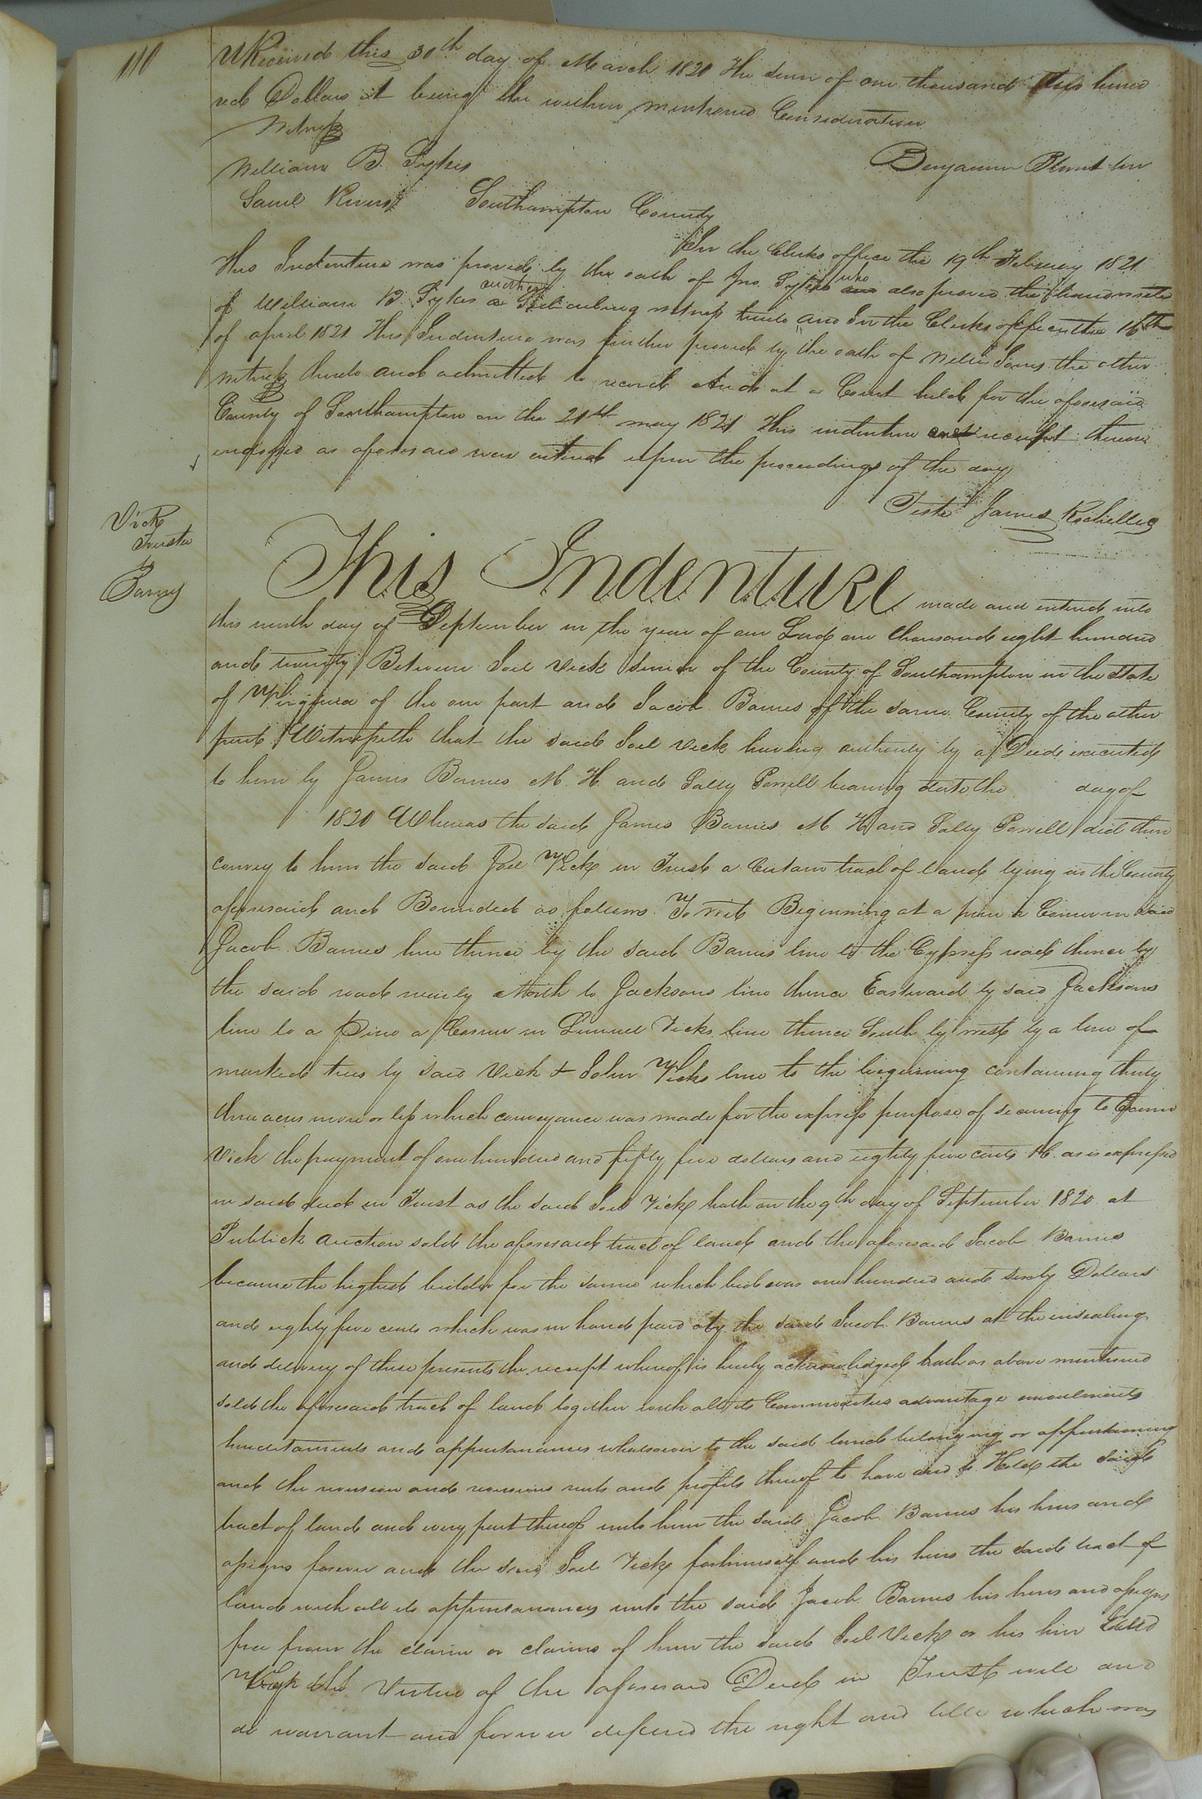 110
Received this 30th day of March 1820 The sum of one thousand two hund
red Dollars it being the within mentioned Consideration
Witness
William B. Sykes Benjamin Blunt Sen
Saml Rivers Southampton County
In the Clerks office the 19th February 1821
This Indenture was proved by the oath of Jno. Sykes who also proved the handwrite
of William B. Sykes a witness thereto and In the Clerks office the 16th
of april 1821 This Indenture was further proved by the oath of the other
witness thereto and admitted to record And at a Court held for the aforesaid
County of Southampton on the 21st may 1821 This indenture and receipt thereon
endorsed as aforesaid was entered upon the proceedings of the day
Teste James Rochelle
Vick
Trustee
to
Barnes
This Indenture made and entered into
this ninth day of September in the year of our Lord one thousand eight hundred
and twenty Between Joel Vick Senior of the County of Southampton in the State
of Virginia of the one part and Jacob Barnes of the same County of the other
part Witnesseth that the said Joel Vick having authority by a Deed executed
to him by James Barnes M. H. and Sally Powell bearing date the day of
1820 Whereas the said James Barnes M H and Sally Powell did then
convey to him the said Joel Vick in Trust a Certain tract of land lying in the County
aforesaid and Bounded as follows To wit Beginning at a pine a Corner in said
Jacob Barnes line thence by the said Barnes line to the Cypress road thence by
the said road nearly North to Jacksons line thence Eastward by said Jacksons
line to a Pine a Corner in Lemuel Vicks line thence South by west by a line of
marked trees by said Vick & John Vicks line to the beginning containing thirty
three acres more or less which conveyance was made for the express purpose of securing to
Vick the payment of one hundred and fifty five dollars and eighty five cents &c. as is expressed
in said deed in Trust as the said Joel Vick hath on the 9th day of September 1820 at
Publick auction sold the aforesaid tract of land and the aforesaid Jacob Barnes
became the highest bidder for the same which bid was one hundred and sixty Dollars
and eighty five cents which was in hand paid by the said Jacob Barnes at the ensealing
and delivery of these presents the receipt whereof is hereby acknowledged hath as above mentioned
sold the aforesaid tract of land together with all its Commodities advantage emoluments
hereditaments and appurtenances whatsoever to the said land belonging or appertaining
and the reversion and reversions rents and profits thereof to have and to Hold the said
tract of land and every part thereof unto him the said Jacob Barnes his heirs and
assigns forever and the said Joel Vick for himself and his heirs the said tract of
land with all its appurtenances unto the said Jacob Barnes his heirs and assigns
free from the claim or claims of him the said Joel Vick or his heirs
Virtue of the aforesaid Deed in Trust will and
do warrant and forever defend the right and title which was